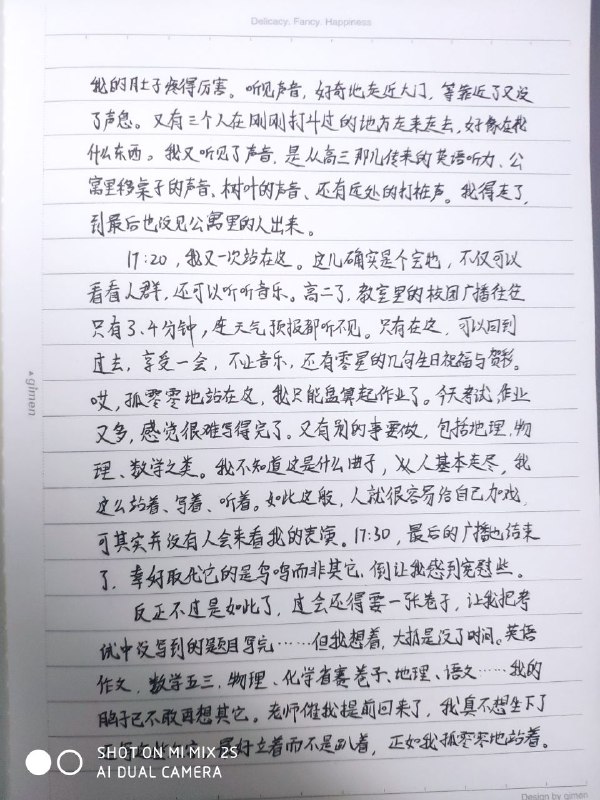 Delicacy. Fancy. Happiness
我的肚子疼得厉害。听见声音，好奇地走近大门，等靠近了又没
了声息。又有三个人在刚刚打斗过的地方走来走去，好像在找
什么东西。我又听见了声音，是从高三那儿传来的英语听力、公
寓里移桌子的声音、树叶的声音、还有远处的打桩声。我得走了，
到最后也没见公寓里的人出来。
17:20，我又一次站在这。这儿确实是个宝地，不仅可以
看看人群，还可以听听音乐。高二了，教室里的校园广播往往
只有3、4分钟，连天气预报都听不见。只有在这，可以回到
过去，享受一会，不止音乐，还有零星的几句生日祝福与贺彩。
哎，孤零零地站在这，我只能盘算起作业了。今天考试，作业
又多，感觉很难写得完了。又有别的事要做，包括地理、物
理、数学之类。我不知道这是什么曲子，人基本走尽，我
这么站着、写着、听着。如此这般，人就很容易给自己加戏，
可其实并没有人会来看我的表演。17:30，最后的广播也结束
了，幸好取代它的是鸟鸣而非其它，倒让我感到宽慰些。
反正不过是如此了，过会还得要一张卷子，让我把考
试中没写到的题目写完……但我想着，大抵是没了时间。英语
作文，数学五三，物理、化学省赛卷子、地理、语文……我的
脑子已不敢再想其它。老师催我提前回来了，我真不想坐下了
最好立着而不是趴着，正如我孤零零地站着。
gimen
SHOT ON MI MIX 2S
AI DUAL CAMERA
Design by gimen